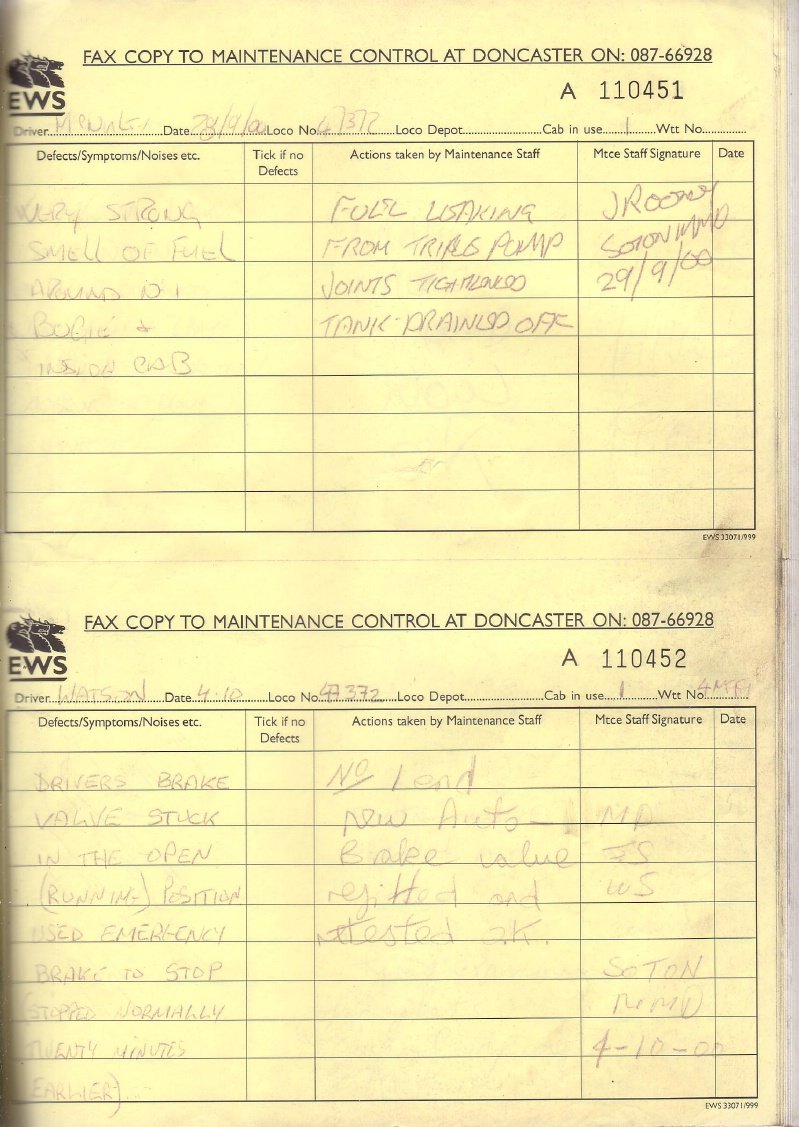 FAX COPY TO MAINTENANCE CONTROL AT DONCASTER ON: 087-66928
EWS
A 110451
Driver Date 29/9/00 Loco No. 47372 Loco Depot Cab in use 1 Wtt No.
Defects/Symptoms/Noises etc. Tick if no Defects Actions taken by Maintenance Staff Mtce Staff Signature Date
VERY STRONG FUEL LEAKING J ROONEY
SMELL OF FUEL FROM TRIPLE PUMP SOTON MMD
AROUND No 1 JOINTS TIGHTENED 29/9/00
BOGIE & TANK DRAINED OFF
INSIDE CAB
EWS 33071/999
FAX COPY TO MAINTENANCE CONTROL AT DONCASTER ON: 087-66928
EWS
A 110452
Driver WATSON Date 4.10 Loco No. 47372 Loco Depot Cab in use 1 Wtt No.
Defects/Symptoms/Noises etc. Tick if no Defects Actions taken by Maintenance Staff Mtce Staff Signature Date
DRIVERS BRAKE No 1 end
VALVE STUCK New Auto-
IN THE OPEN Brake valve
(RUNNING) POSITION refitted and
USED EMERGENCY tested o.k.
BRAKE TO STOP SOTON
(STOPPED NORMALLY MMD
TWENTY MINUTES 4-10-00
EARLIER)...
EWS 33071/999